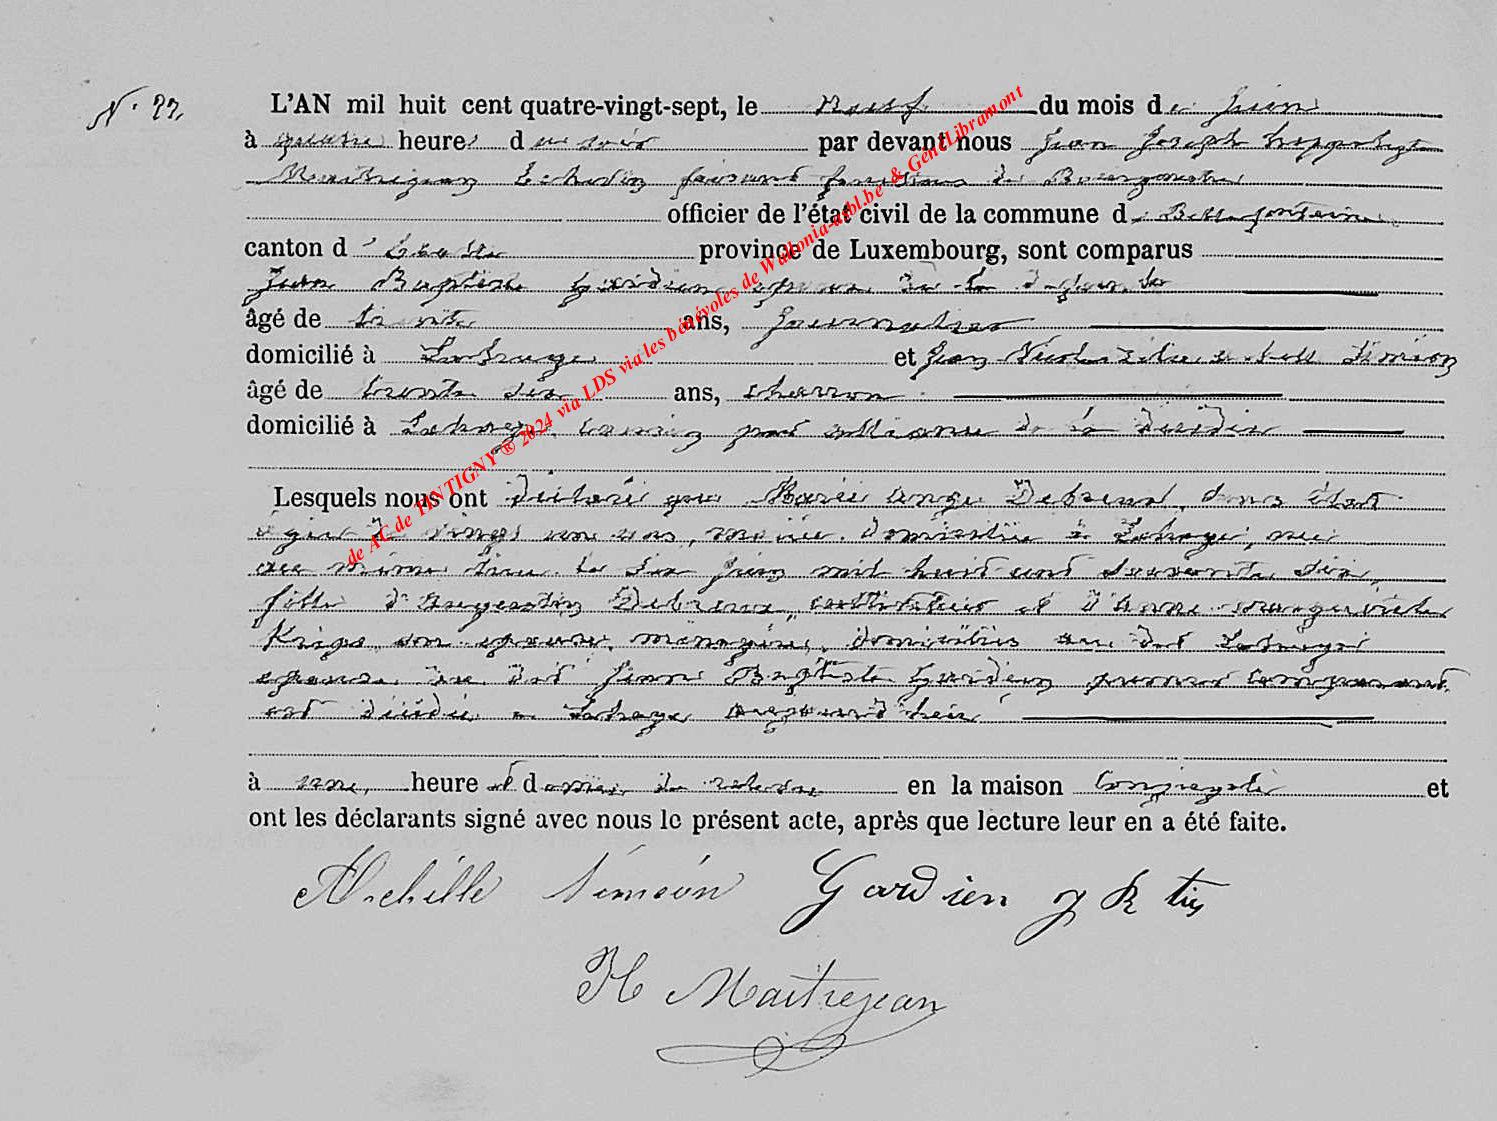 N° 22.
L'AN mil huit cent quatre-vingt-sept, le neuf du mois de Juin
à quatre heures du soir par devant nous Jean Joseph hyppolyte
Maitrejean Echevin faisant fonctions de Bourgmestre
officier de l'état civil de la commune de Bellefontaine
canton d'Etalle province de Luxembourg, sont comparus
Jean Baptiste Gardien époux de la défunte
âgé de trente ans, Journalier
domicilié à Lahage et Jean Nicolas Siméon
âgé de trente six ans, charron
domicilié à Lahage, cousin par alliance de la décédée
Lesquels nous ont déclaré que Marie Ange Debreux, sans état
âgée de vingt un ans, domiciliée à Lahage, née
au même lieu le six Juin mil huit cent soixante six,
fille d'Augustin Debreux, cultivateur et d'Anne marguerite
son épouse, ménagère, domiciliés au dit Lahage
épouse du dit Jean Baptiste Gardien premier comparant
est décédée à Lahage aujourd'hui
à une heure et demie de relevée en la maison conjugale et
ont les déclarants signé avec nous le présent acte, après que lecture leur en a été faite.
Achille Siméon Gardien J B tis
H Maitrejean
de AC de TINTIGNY ® 2024 via LDS via les bénévoles de Wallonia-asbl.be & GénéLibramont